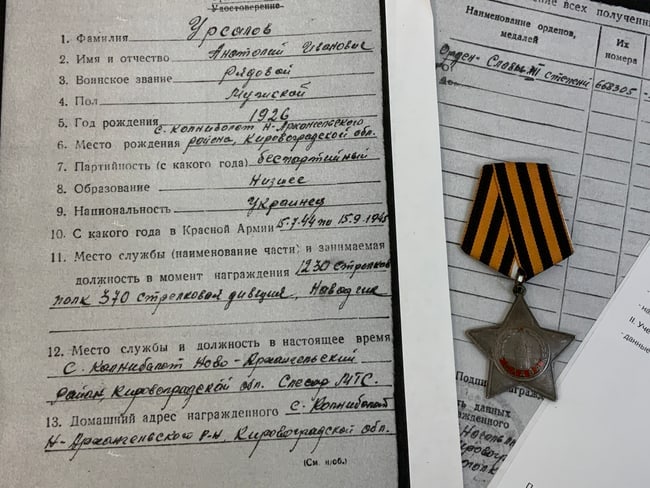 Удостоверение
1. Фамилия Урсалов
2. Имя и отчество Анатолий Иванович
3. Воинское звание Рядовой
4. Пол Мужской
5. Год рождения 1926
с. Копнибалот Н-Архангельского
6. Место рождения района, Кировоградской обл.
7. Партийность (с какого года) беспартийный
8. Образование Низшее
9. Национальность Украинец
10. С какого года в Красной Армии 15.7.44 по 15.9.1945
11. Место службы (наименование части) и занимаемая
должность в момент награждения 1230 стрелков
полк 370 стрелковая дивизия, Наводчик
12. Место службы и должность в настоящее время
с. Копнибалот Ново-Архангельский
район Кировоградской обл. Слесар МТС.
13. Домашний адрес награжденного с. Копнибалот
Н-Архангельского р-н, Кировоградской обл.
(См. н/об.)
всех полученн
Наименование орденов,
медалей
Их
номера
Орден "Славы" III степени
668305
До
II. Уч
- данные
Подпи
награж
данных
жденного
полк